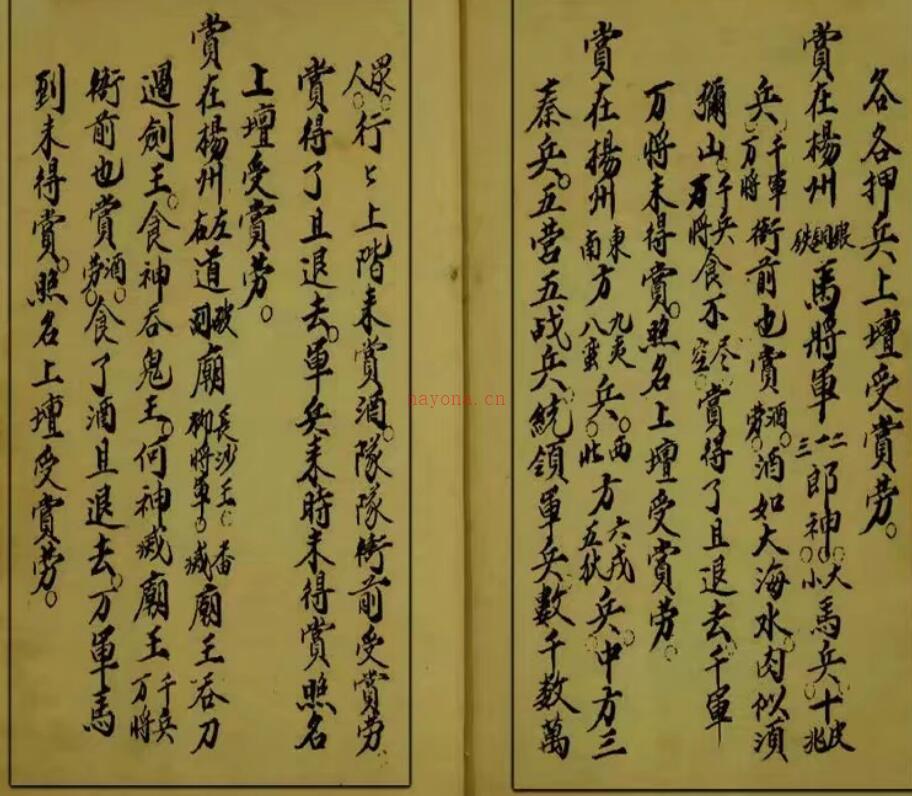 各各押兵上壇受賞劳。
賞在楊州銀銅鉄馬將軍二一三郎神。大小馬兵十皮兆
兵。千軍万將衙前也賞酒劳。酒如大海水。肉似須
彌山。千兵万將食不尽空賞得了且退去千軍
万將未得賞。照名上壇受賞劳。
賞在楊州東南方九夷八蛮兵。西北方六戎五狄兵。中方三
秦兵。五营五战兵。統領軍兵數千數萬
眾人。行〻上階來賞酒。隊隊衙前受賞劳
賞得了且退去。軍兵來時未得賞照名
上壇受賞劳。
賞在楊州左右道破廟長沙王。柳將軍。番滅廟王吞刀
過劍王。食神吞鬼王。何神滅廟王千兵万將
衙前也賞酒劳。食了酒且退去。万軍馬
到未得賞。照名上壇受賞劳。
nayona.cn